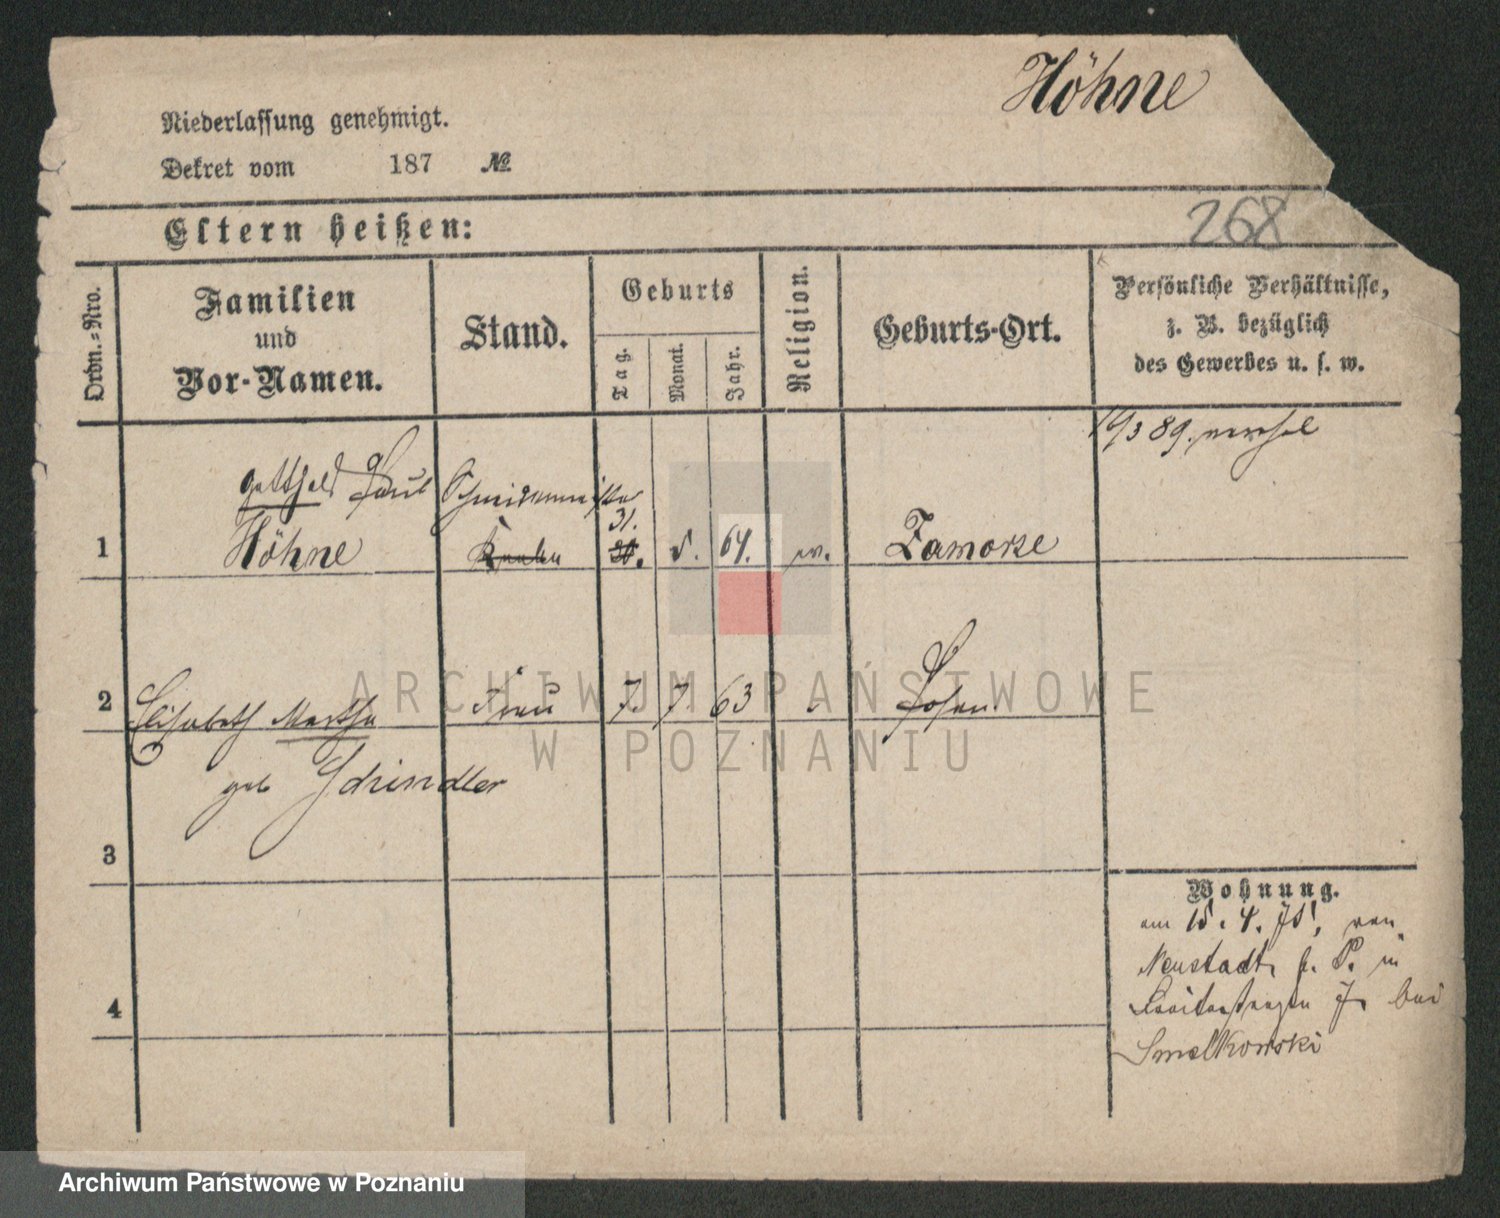 Höhne
Niederlassung genehmigt.
Dekret vom 187 №
Eltern heißen:
268
Ordn.-Nro.
Familien
und
Vor-Namen.
Stand.
Geburts
Tag.
Monat.
Jahr.
Religion.
Geburts-Ort.
Persönliche Verhältnisse,
z. B. bezüglich
des Gewerbes u. s. w.
3 89.
Gotthold Paul
1 Höhne 31. 5. 64. ev. Zamorze
2 Elisabeth Martha Frau 7. 7 63 Posen
geb Schindler
3
4
Wohnung.
am 15. 4. 75, von
Neustadt b. P. in
Breitestraße 7 bei
Smelkowski
ARCHIWUM PAŃSTWOWE
W POZNANIU
Archiwum Państwowe w Poznaniu